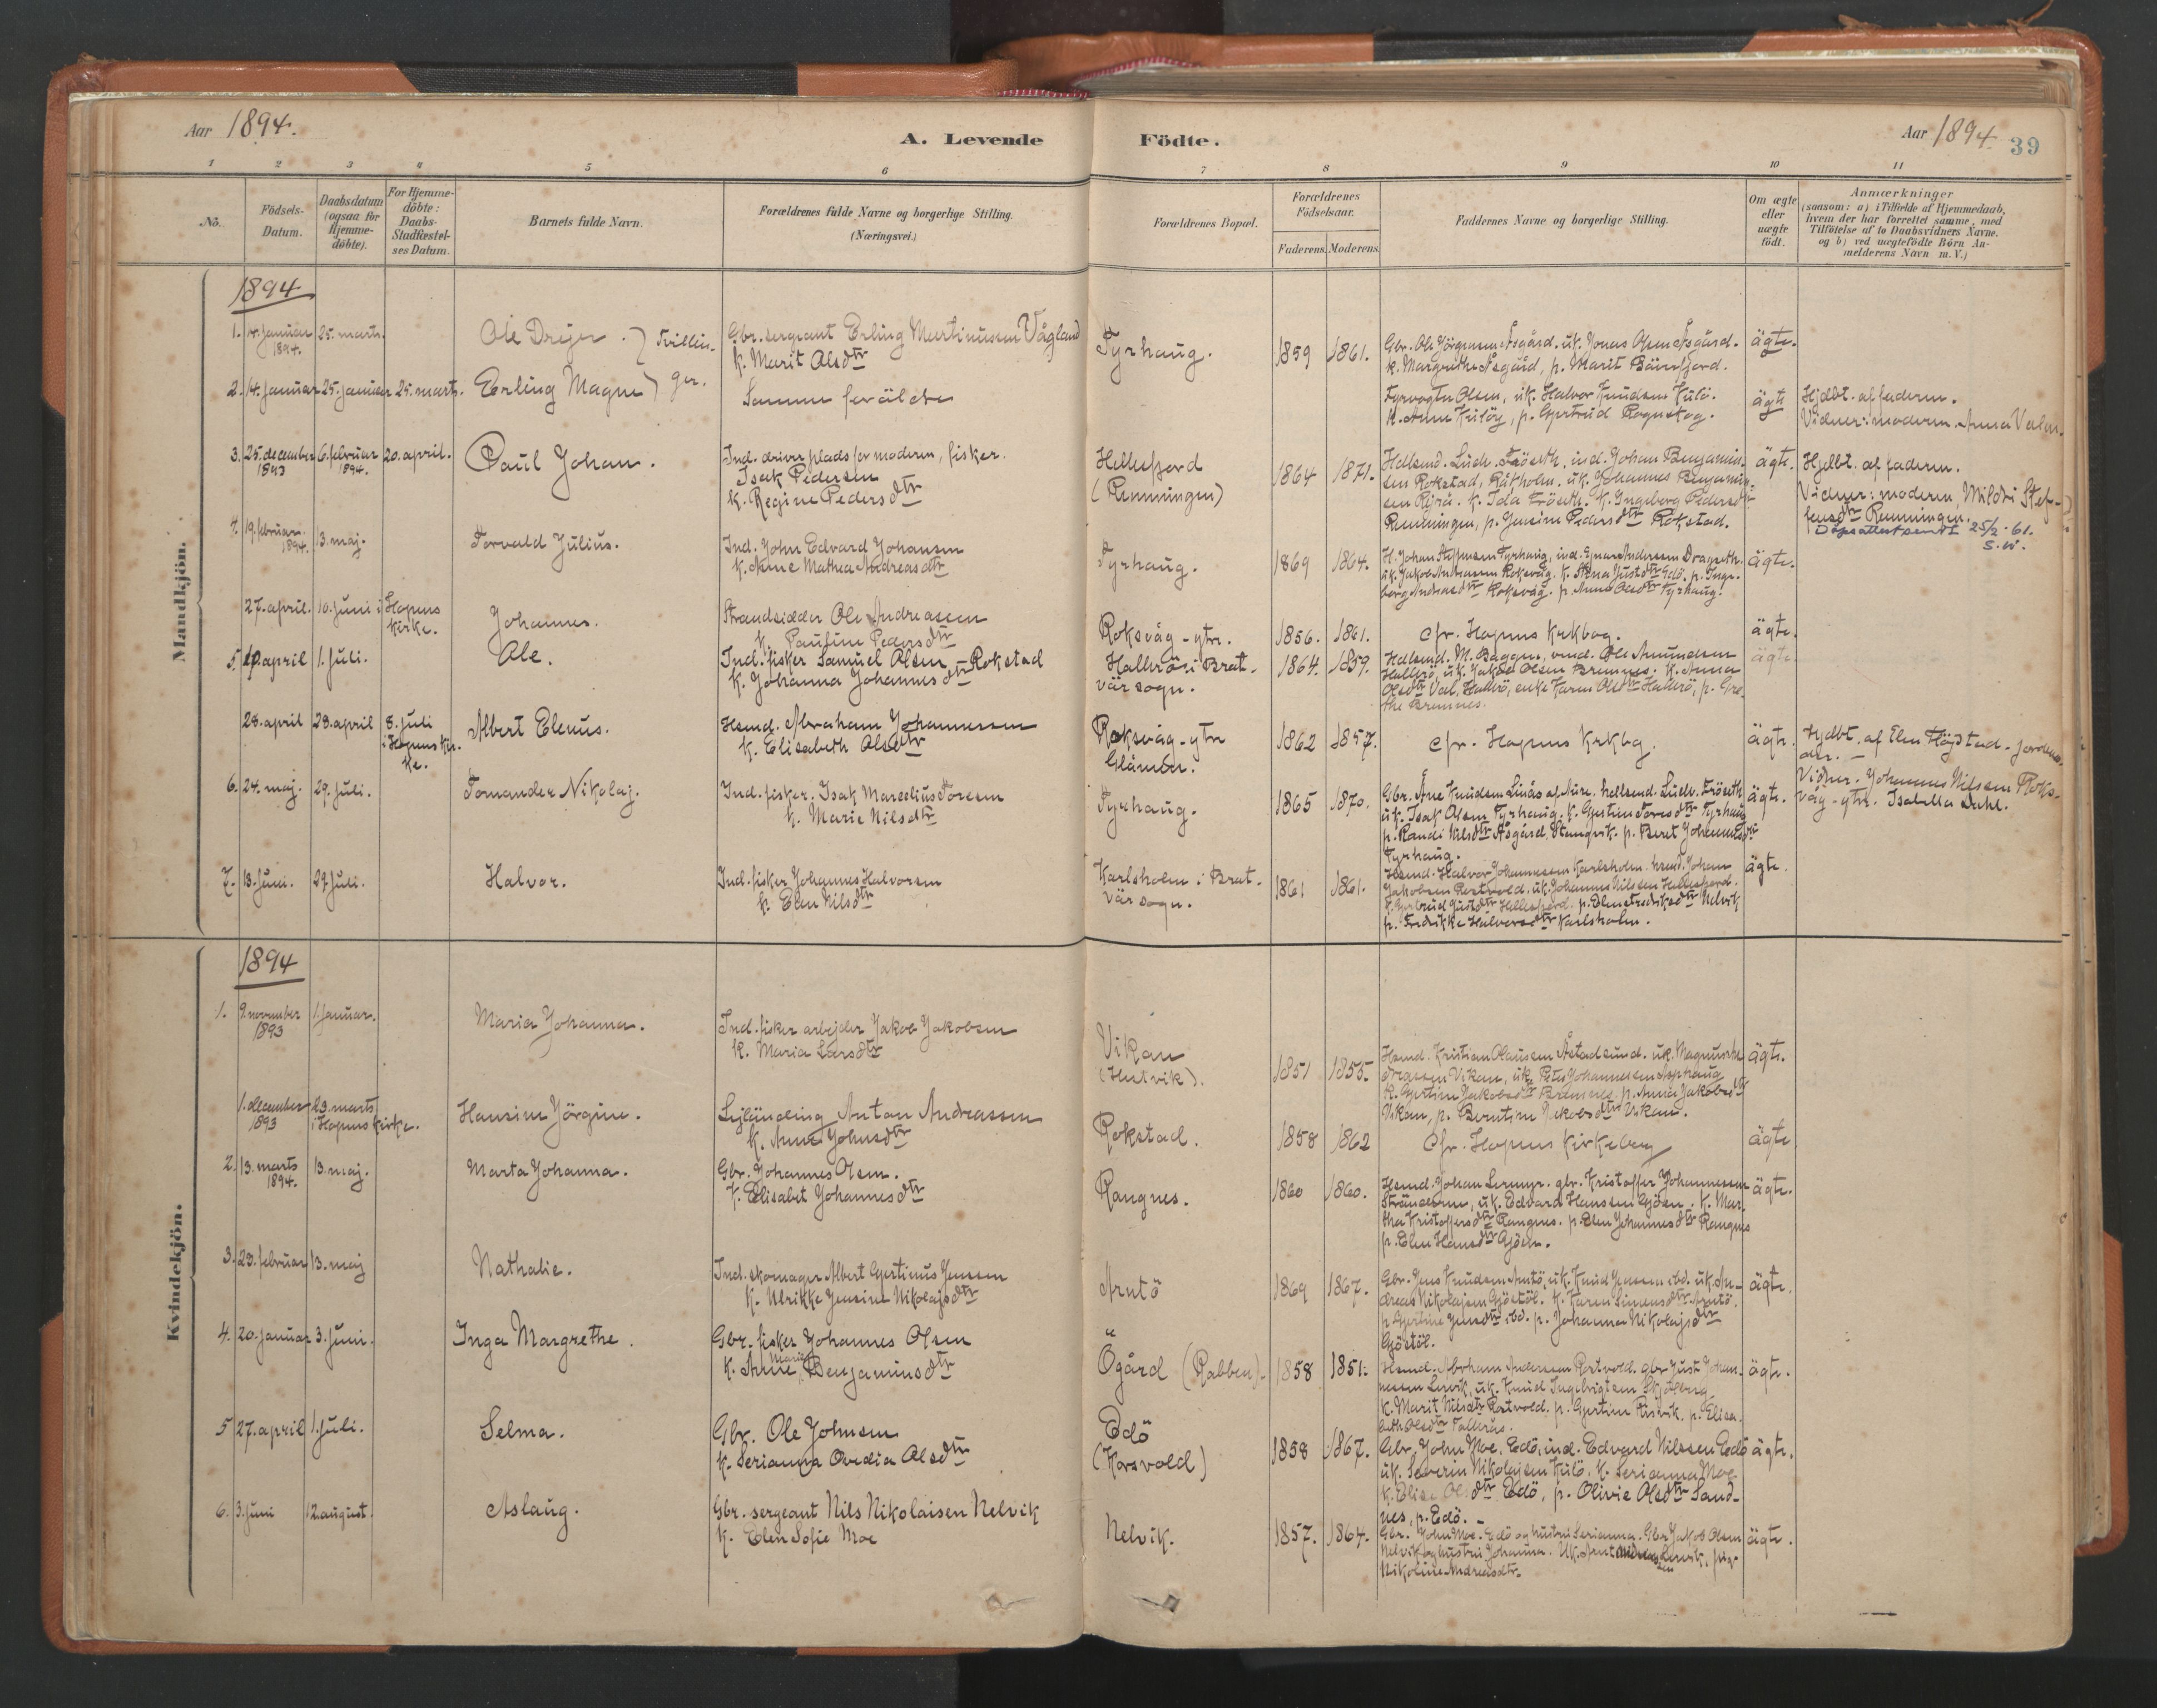 Aar 1894.
A. Levende Födte.
Aar 1894
39
1 2 3 4 5 6 7 8 9 10 11
No.
Födsels-
Datum.
Daabsdatum
(ogsaa for
Hjemme-
döbte).
For Hjemme-
döbte:
Daabs-
Stadfæstel-
ses Datum.
Barnets fulde Navn.
Forældrenes fulde Navne og borgerlige Stilling.
(Næringsvei.)
Forældrenes Bopæl.
Forældrenes
Födselsaar.
Faderens. Moderens.
Faddernes Navne og borgerlige Stilling.
Om ægte
eller
uægte
födt.
Anmærkninger
(saasom: a) i Tilfælde af Hjemmedaab,
hvem der har forrettet samme, med
Tilföielse af to Daabsvidners Navne.
og b) ved uægtefödte Börn An-
melderens Navn m. V.)
Mandkjön.
1894
1. 14. januar 1894. 25. marts. Ole Drejer. Tvillin-
Gbr. sergeant Erling Martinussen Vågland
k. Marit Olsdtr
Tyrhaug. 1859 1861.
Gbr. Ole Jörgensen Åsgård. uk. Jonas Olsen Åsgård.
k. Margrethe Åsgård, p. Marit Bäverfjord.
ägte.
2. 14. januar 25. januar 25. marts. Erling Magne ger.
Samme foräldre
Fyrvogter Olsen, uk. Halvor Knudsen Kulö.
p. Gjertrud Rognskog.
ägte
Hjdbt. af faderen.
Vidner: moderen. Anna
3. 25. december 1893 6. februar 1894. 20. april. Paul Johan.
Ind. driver plads for moderen, fisker.
Isak Pedersen
k. Regine Pedersdtr
Hellesfjord
(Renningen)
1864 1871.
sen Rokstad, uk. Johannes Benjamin-
k. Ida k. Ingeborg Pedersdtr
Renningen, p. Jensine Pedersdtr Rokstad.
ägte.
Hjdbt. af faderen.
Vidner: moderen, Mildri Stef-
fensdtr Renningen.
Dåpsattest sendt 25/2-61.
4. 19. februar 1894. 13. maj. Torvald Julius.
Ind. John Edvard Johansen
k. Anne Mathea Andreasdtr
Tyrhaug. 1869 1864.
berg Andreasdtr Roksvåg. p. Anne Olsdtr Tyrhaug.
ägte.
27. april. 10. juni i Hopens kirke. Johannes.
Strandsidder Ole Andreassen
k. Pauline Pedersdtr
Roksvåg-ytr. 1856. 1861.
cfr. Hopens krkbog.
ägte.
5. april 1. juli. Ole.
Ind. fisker Samuel Olsen Rokstad
k. Johanna Johannesdtr
Hallerö i Brat-
vär sogn.
1864. 1859.
Hallerö, uk. Jakob Olsen Bremnes. k. Anna
Olsdtr Hallerö, enke Karen Olsdtr Hallerö, p. Gre-
the Bremnes.
ägte.
28. april 29. april 8. juli i Hopens kir-
ke.
Albert Elenus.
Hsmd. Abraham Johannessen
k. Elisabeth Olsdtr
Roksvåg-ytre
Glåmen.
1862 1857.
cfr. Hopens krkbg.
ägte.
Hjdbt. af Elen Höjstad - jordmo-
der. -
Vidner. Johannes Nilsen Roks-
våg-ytr. Isabella Dahl.
6. 24. maj. 29. juli. Tomander Nikolaj.
Ind. fisker. Isak Marselius Toresen
k. Marie Nilsdtr
Tyrhaug. 1865 1870.
uk. Isak Olsen Tyrhaug. k. Gjertine Toresdtr Tyrhaug
p. Randi Nilsdtr Åsgård, Stangvik. p. Beret Johannesdtr
Tyrhaug.
ägte.
7. 13. juni. 29. juli. Halvor.
Ind. fisker Johannes Halvorsen
k. Elen Nilsdtr
Karlsholm i Brat-
vär sogn.
1861 1861.
Hsmd. Halvor Johannessen Karlsholm. hsmd. Johan
Jakobsen Rostvold. uk. Johannes Nilsen Hellesfjord.
p. Fredrikke Halvorsdtr Karlsholm.
ägte.
Kvindekjön.
1894
1. 9. november 1893 1. januar. Maria Johanna.
Ind. fisker arbejder Jakob Jakobsen
k. Maria Larsdtr
Vikan
(Hutvik).
1851 1855.
Hsmd. Kristian Olausen uk. Magnus
Vikan, uk. Peter Johannessen
Vikan, p. Berntine Jakobsdtr Vikan.
ägte.
1. december 1893 23. marts i Hopens kirke. Hansine Jörgine.
Lejländing Anton Andreassen
k. Anne Johnsdtr
Rokstad. 1858 1862
Cfr. Hopens kirkebog
ägte
2. 13. marts 1894. 13. maj. Marta Johanna.
Gbr. Johannes Olsen.
k. Elisabet Johannesdtr
Rangnes. 1860 1860.
Hsmd. Johan gbr. Kristoffer Johannessen
uk. Edvard Hanssen Gjöen. k. Mar-
tha Kristoffersdtr Rangnes. p. Elen Johannesdtr Rangnes
p. Elen Hansdtr Gjöen.
ägte.
3. 23. februar 13. maj Nathalie.
Ind. skomager Albert Gjertinus Jenssen
k. Ulrikke Jensine Nikolajsdtr
Arntö 1869 1867.
Gbr. Jens Knudsen Arntö, uk. Knud Jenssen ibd. uk. An-
dreas Nikolajsen Gjöstöl. k. Karen Simensdtr Arntö.
p. Gjertine Jensdtr ibd. p. Johanna Nikolajsdtr
Gjöstöl.
ägte.
4. 20. januar 3. juni. Inga Margrethe.
Gbr. fisker Johannes Olsen
k. Anne Marie Benjaminsdtr
Ögård (Rabben). 1858 1851.
Hsmd. Abraham Andersen Rostvold. gbr. Just Johan-
nessen Lervik, uk. Knud Ingebrigtsen Skjölberg
k. Marit Nilsdtr Rostvold. p. Gjertine Risvik. p. Elisa-
beth Olsdtr
ägte.
5 27. april 1. juli. Selma.
Gbr. Ole Johnsen
k. Serianna Ovedia Olsdtr
Edö
(Korsvold)
1858 1867.
Gbr. John Moe, Edö, ind. Edvard Nilssen Edö
uk. Severin Nikolajsen Kulö. k. Serianna Moe
k. Elise Olsdtr Edö, p. Olivie Olsdtr Sand-
nes, p. Edö. -
ägte.
6. 3. juni 12. august. Aslaug.
Gbr. sergeant Nils Nikolaisen Nelvik
k. Elen Sofie Moe
Nelvik. 1857. 1864.
Gbr. John Moe. Edö og hustru Serianna. Gbr Jakob Olsen
Nelvik og hustru Johanna. Uk. Lervik, pige
Nikoline Andreasdtr.
ägte.